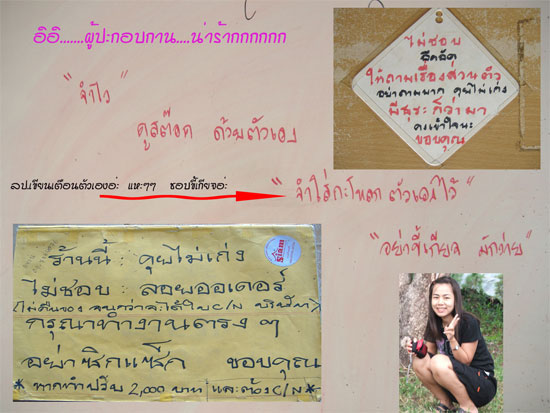 อิอิ.......ผู้ปะกอบกาน....น่าร้ากกกกกก
"จำไว้"
ดูสต๊อค ด้วยตัวเอง
ลป.เขียนเตือนตัวเองอ่ะ แหะๆๆ ชอบขี้เกียจอ่ะ
"จำใส่กะโหลกตัวเองไว้"
"อย่าขี้เกียจ มักง่าย"
ไม่ชอบ
ให้ถามเรื่องส่วนตัว
อย่าถามมาก คุยไม่เก่ง
มีธุระ ก็ว่ามา
คงเข้าใจนะ
ขอบคุณ
ร้านนี้ : คุยไม่เก่ง
ไม่ชอบ : ลอยออเดอร์
กรุณาทำงานตรง ๆ
อย่าซิกแซ็ก ขอบคุณ
2,000 บาท และต้อง C/N